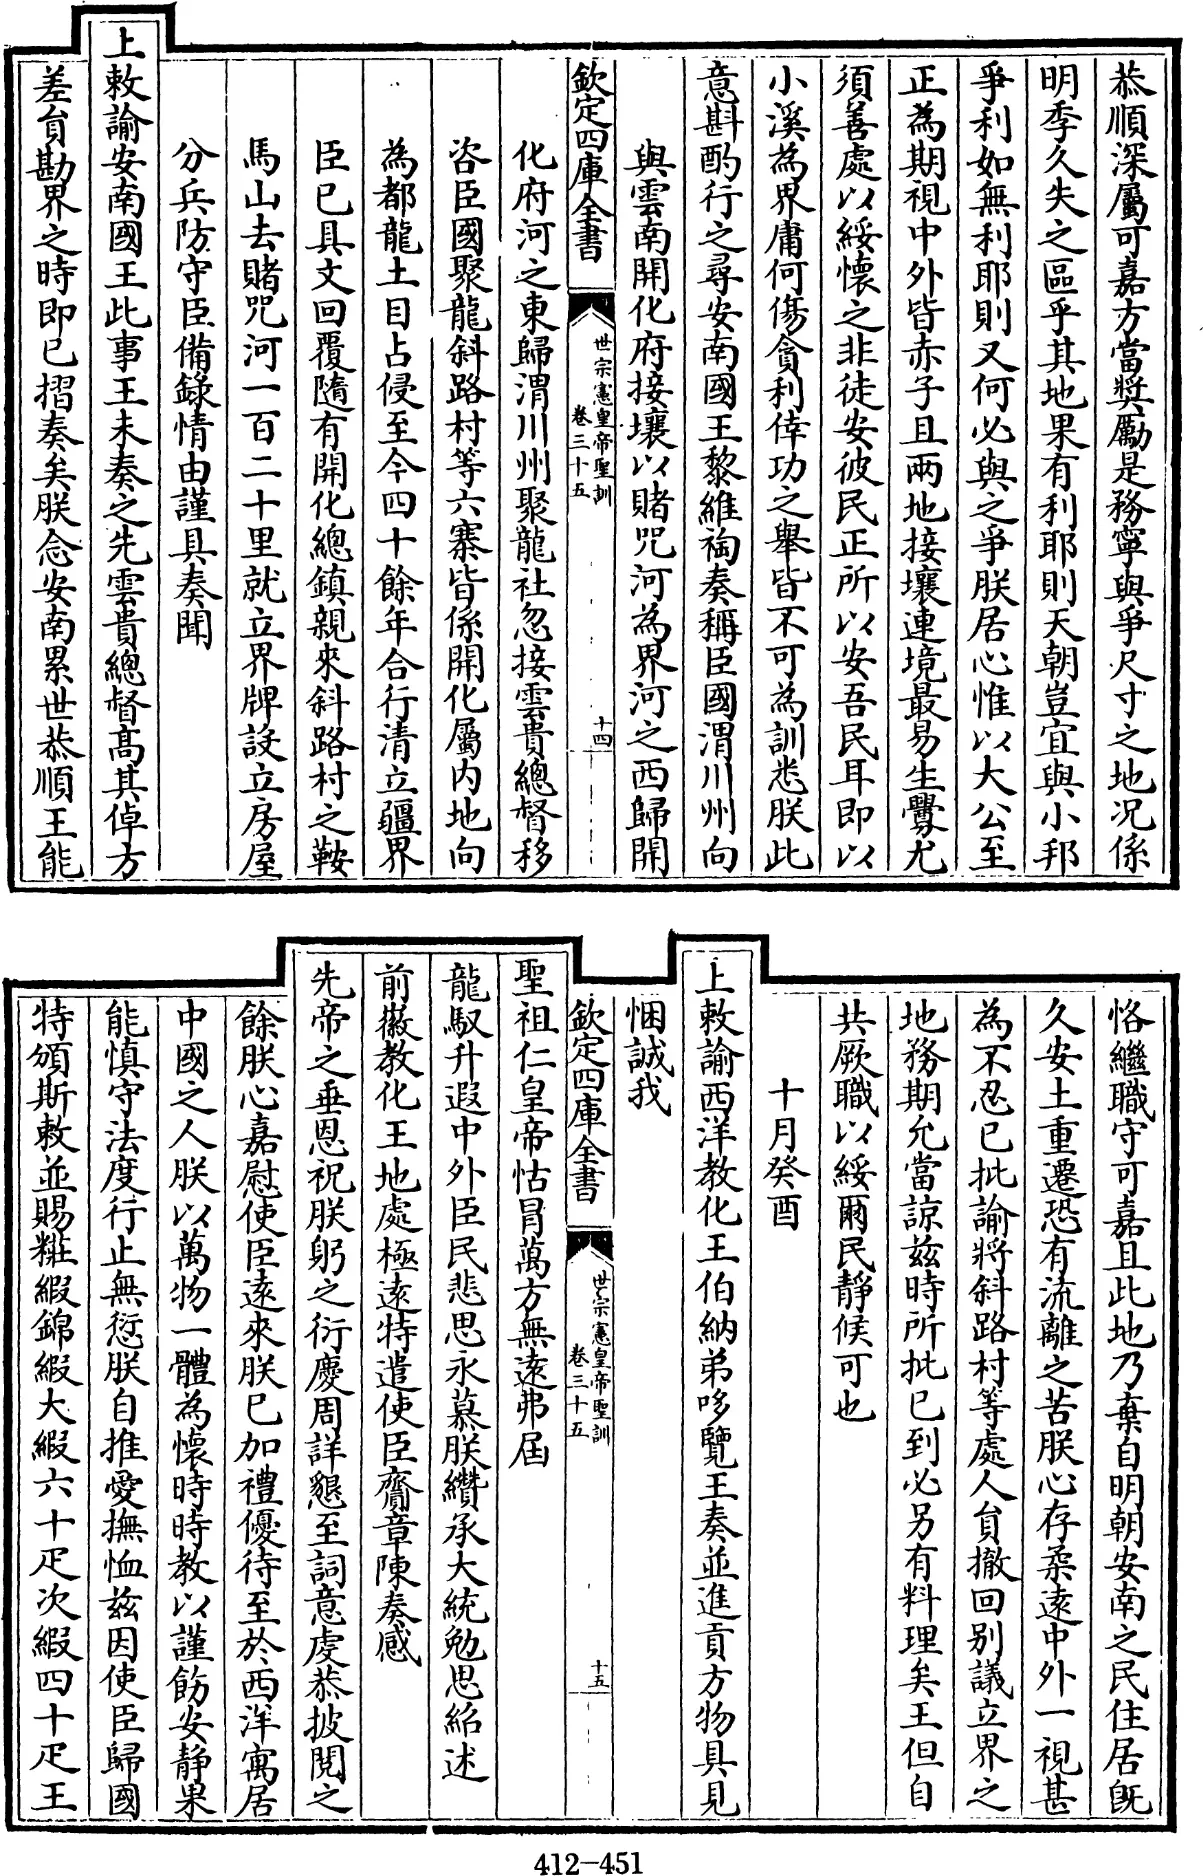 恭順深屬可嘉方當奬勵是務寧與爭尺寸之地况係
明季久失之區乎其地果有利耶則天朝豈宜與小邦
爭利如無利耶則又何必與之爭朕居心惟以大公至
正為期視中外皆赤子且兩地接壤連境最易生釁尤
須善處以綏懷之非徒安彼民正所以安吾民耳即以
小溪為界庸何傷貪利倖功之舉皆不可為訓悉朕此
意斟酌行之尋安南國王黎維祹奏稱臣國渭川州向
與雲南開化府接壤以賭咒河為界河之西歸開
欽定四庫全書
世宗憲皇帝聖訓
卷三十五
十四
化府河之東歸渭川州聚龍社忽接雲貴總督移
咨臣國聚龍斜路村等六寨皆係開化屬内地向
為都龍土目占侵至今四十餘年合行清立疆界
臣已具文回覆隨有開化總鎮親來斜路村之鞍
馬山去賭咒河一百二十里就立界牌設立房屋
分兵防守臣備錄情由謹具奏聞
上敕諭安南國王此事王未奏之先雲貴總督髙其倬方
差員勘界之時即已摺奏矣朕念安南累世恭順王能
恪繼職守可嘉且此地乃棄自明朝安南之民住居旣
久安土重遷恐有流離之苦朕心存柔逺中外一視甚
為不忍已批諭將斜路村等處人員撤回别議立界之
地務期允當諒兹時所批已到必另有料理矣王但自
共厥職以綏爾民靜候可也
十月癸酉
上敕諭西洋教化王伯納弟哆覽王奏並進貢方物具見
悃誠我
欽定四庫全書
世宗憲皇帝聖訓
卷三十五
十五
聖祖仁皇帝怙冒萬方無逺弗届
龍馭升遐中外臣民悲思永慕朕纘承大統勉思紹述
前徽教化王地處極逺特遣使臣齎章陳奏感
先帝之垂恩祝朕躬之衍慶周詳懇至詞意虔恭披閲之
餘朕心嘉慰使臣逺來朕已加禮優待至於西洋寓居
中國之人朕以萬物一體為懷時時教以謹飭安靜果
能慎守法度行止無愆朕自推愛撫恤兹因使臣歸國
特頒斯敕並賜粧緞錦緞大緞六十疋次緞四十疋王
412-451